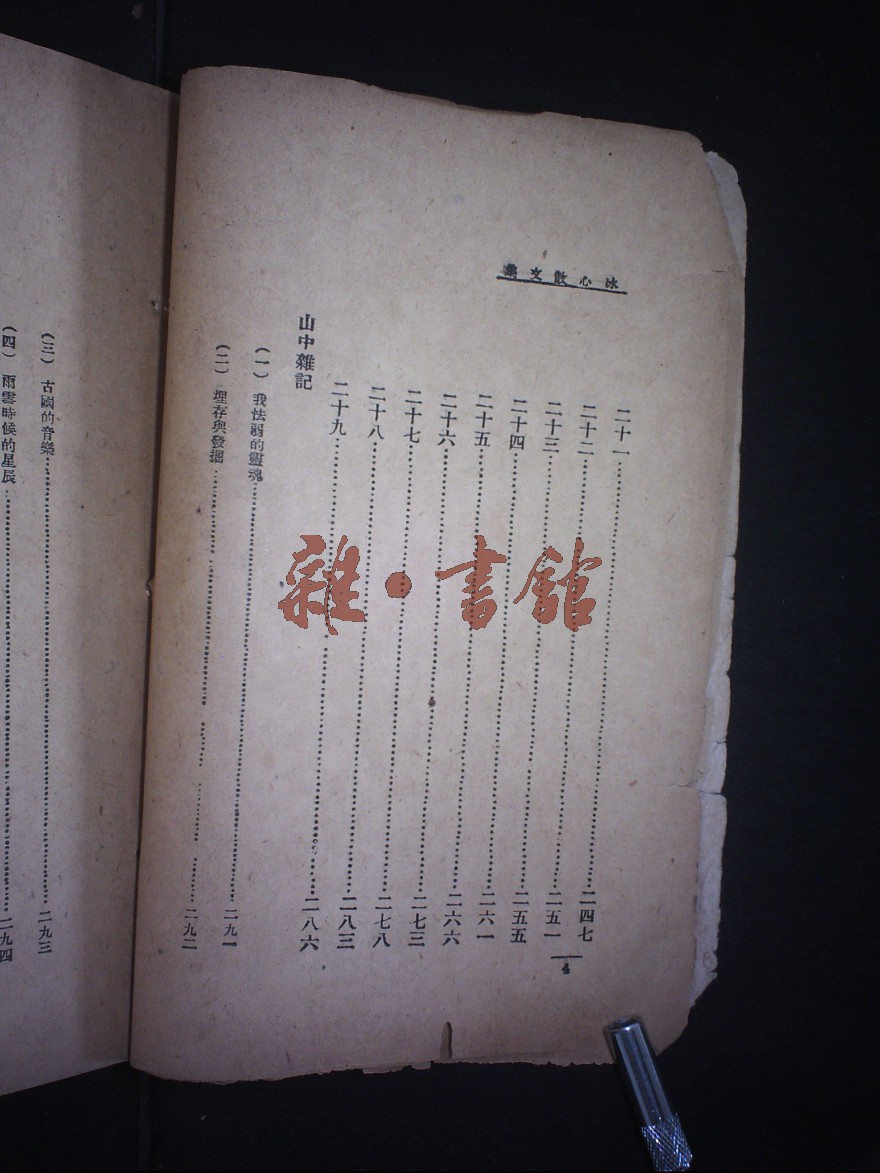 冰心散文集
二十一……二四七
二十二……二五一
二十三……二五五
二十四……二六一
二十五……二六六
二十六……二七三
二十七……二七八
二十八……二八三
二十九……二八六
山中雜記
（一） 我怯弱的靈魂……二九一
（二） 埋存與發掘……二九二
4
（三） 古國的音樂……二九三
（四） 雨雪時候的星辰……二九四
雜·書館